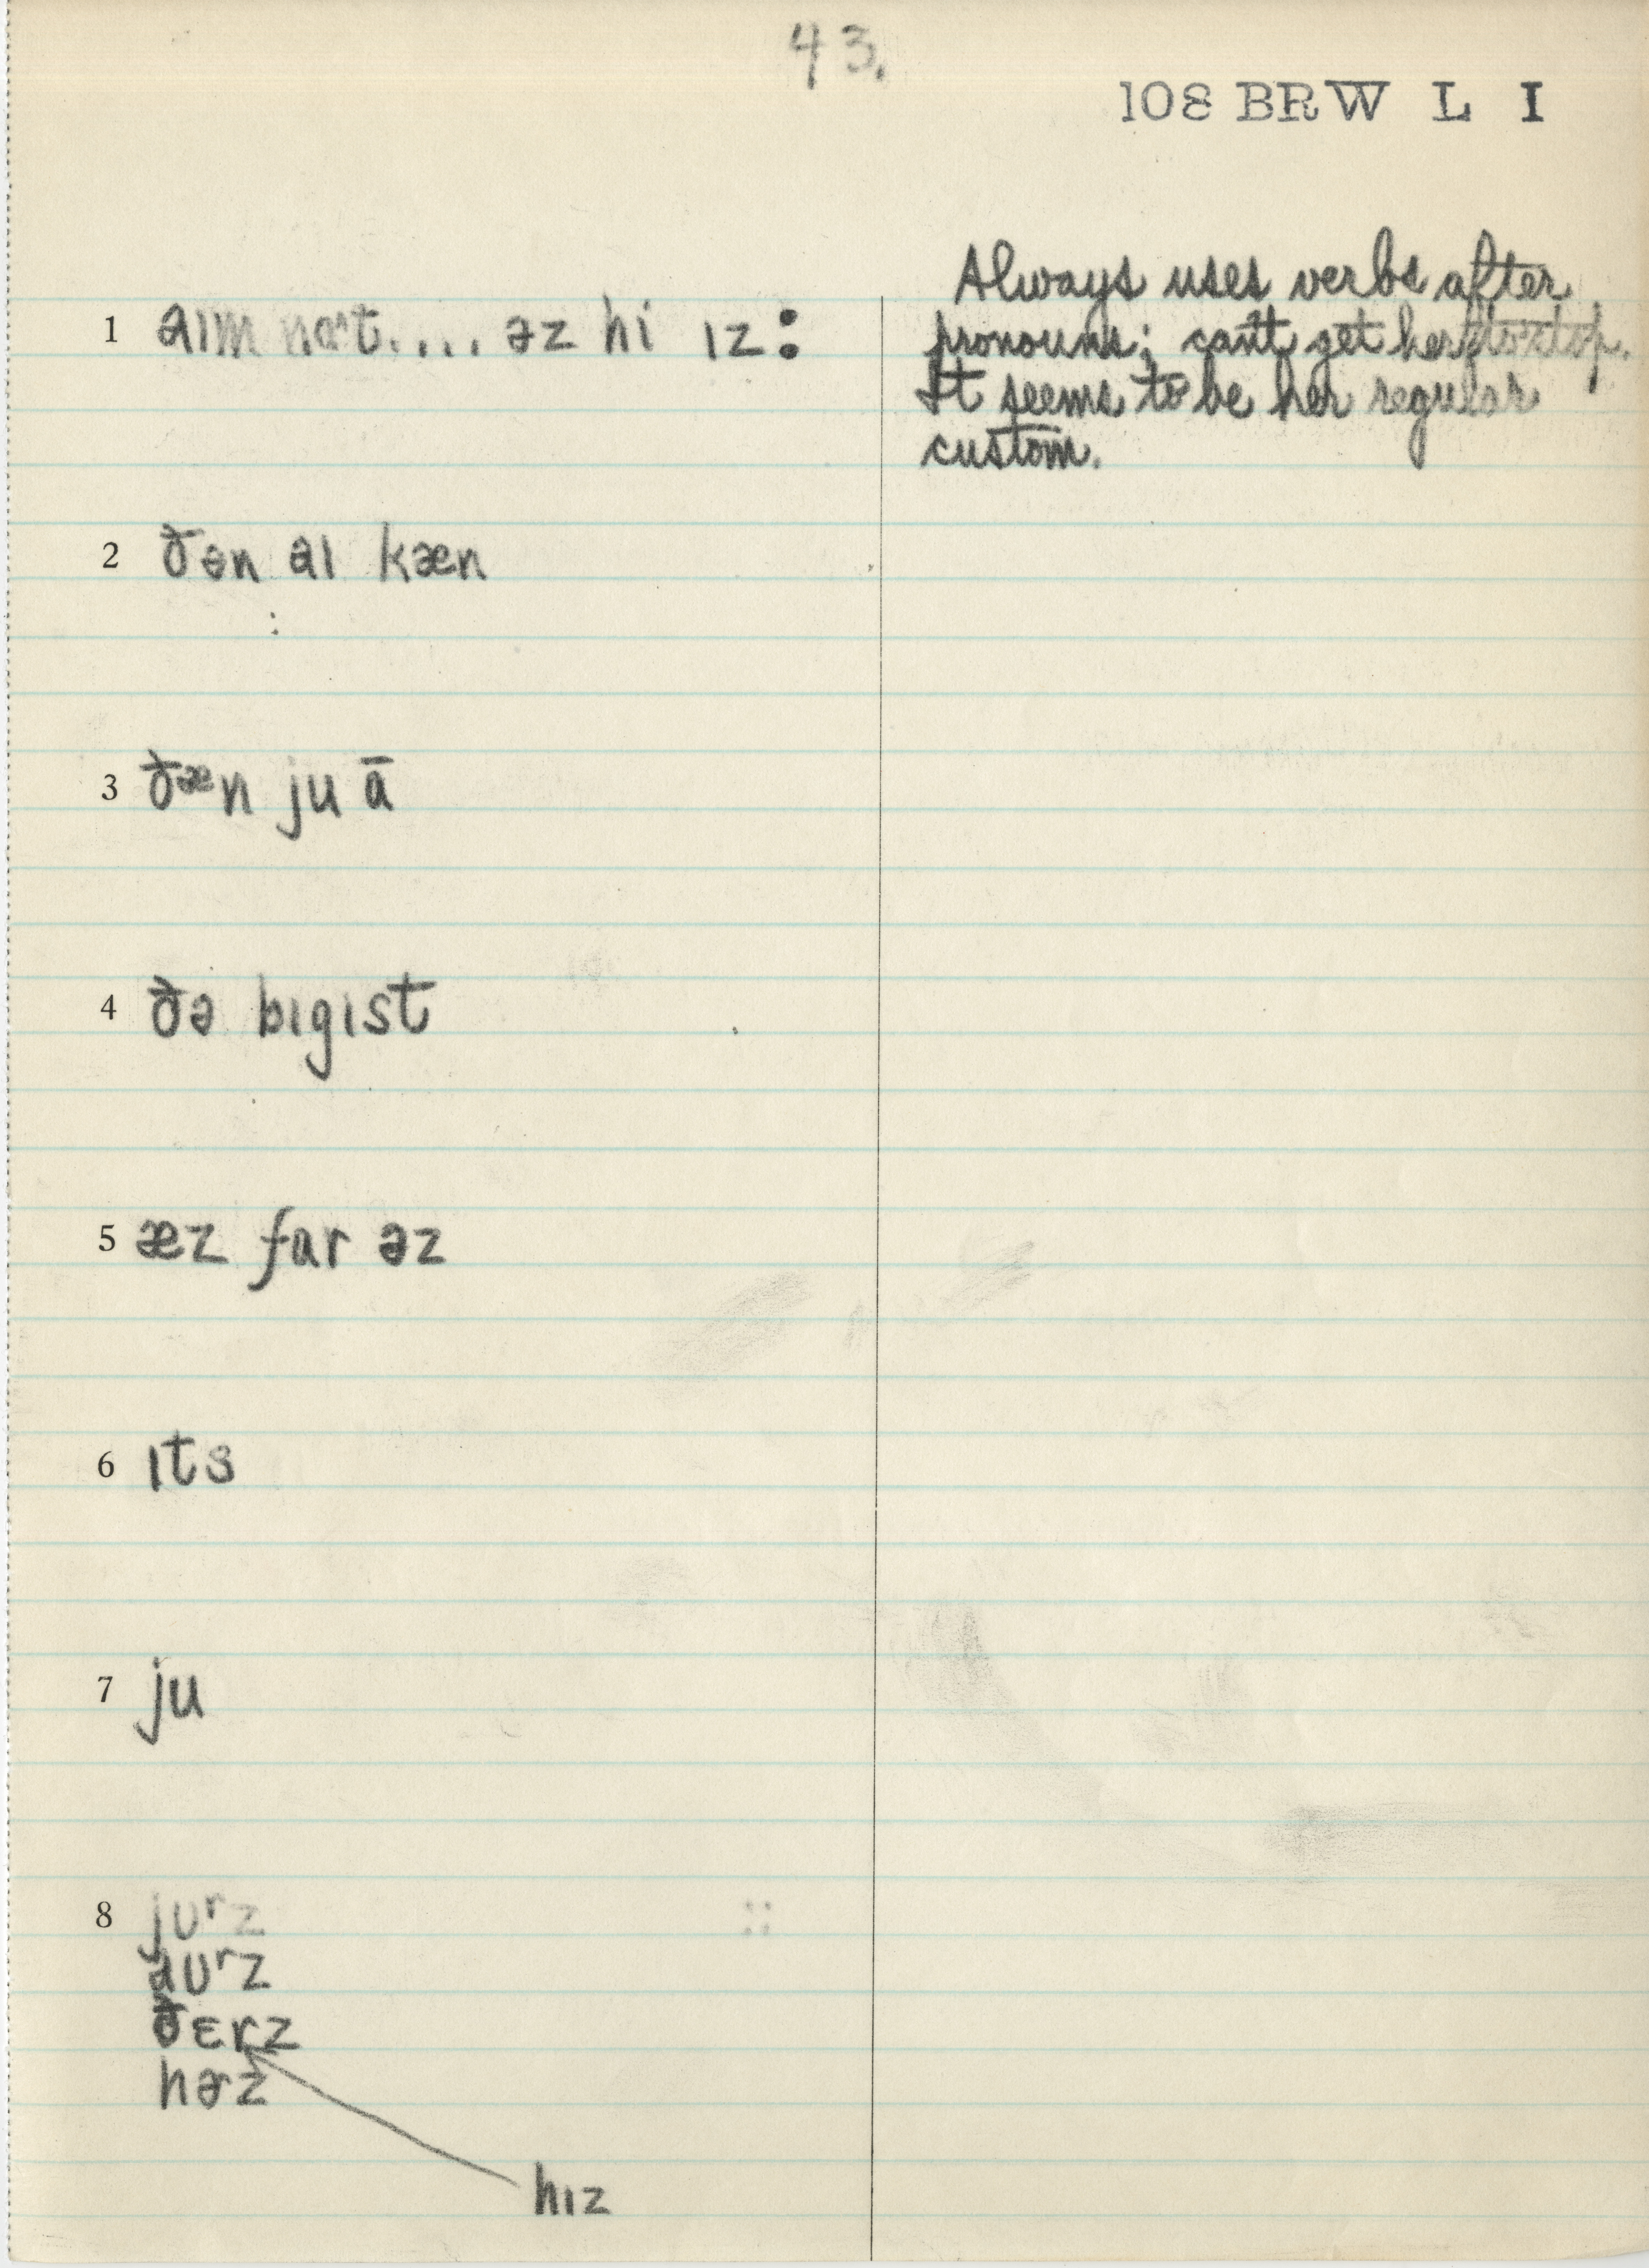 43.
108 BRW L I
Always uses verbs after
pronouns; can't get her to stop.
It seems to be her regular
custom.
1 aɪm nɑt.... əz hi ɪz:
2 ðən aɪ kæn
3 ðæn ju ā
4 ðə bɪgɪst
5 æz far əz
6 ɪts
7 ju
8 jʊʳz
aʊʳz
ðɛrz
hɚz
hɪz